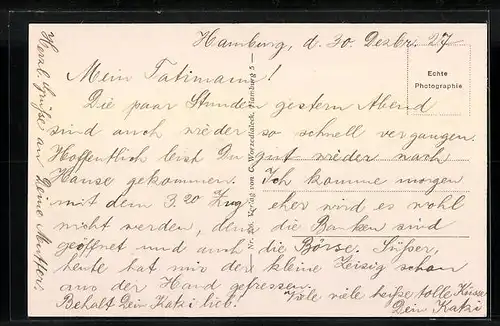 Hamburg, d. 30. Dezbr. 27
Echte
Photographie
Mein Tatimann!
Die paar Stunden gestern Abend
sind auch wieder so schnell vergangen.
Hoffentlich bist Du gut wieder nach
Hause gekommen. Ich komme morgen
mit dem 3.20 Zug, eher wird es wohl
nicht werden, denn die Banken sind
geöffnet und auch die Börse. Süßer,
heute hat mir der kleine Zeisig schon
aus der Hand gefressen.
Viele viele heiße tolle Küsse
Behalt Dein Katzi lieb!
Dein Katzi
Herzl. Grüße an Deine Mutter.
Verlag von G. Hamburg 5